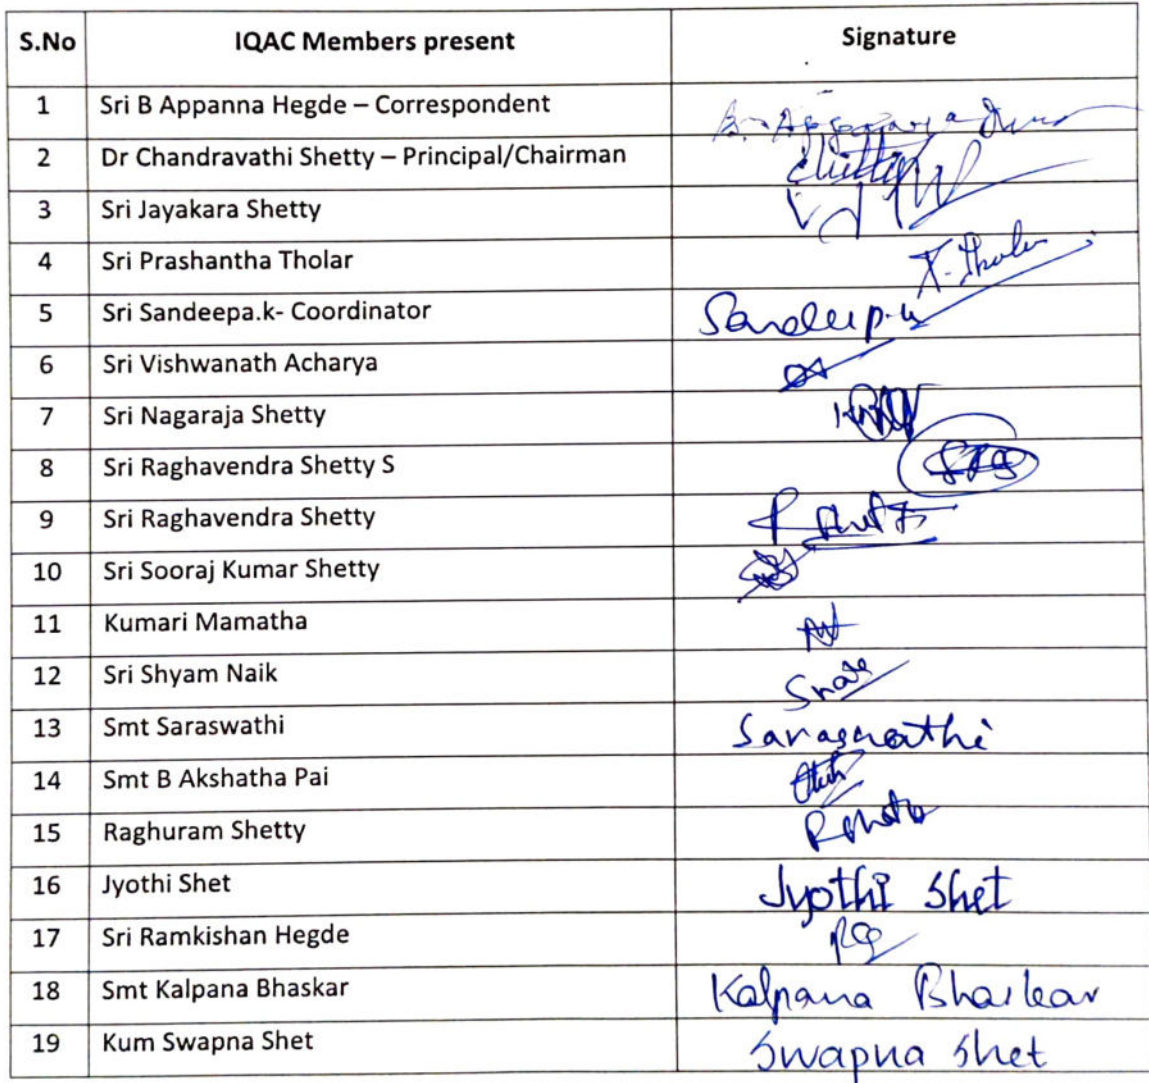 S.No IQAC Members present Signature
1 Sri B Appanna Hegde – Correspondent
2 Dr Chandravathi Shetty – Principal/Chairman
3 Sri Jayakara Shetty
4 Sri Prashantha Tholar
5 Sri Sandeepa.k- Coordinator
6 Sri Vishwanath Acharya
7 Sri Nagaraja Shetty
8 Sri Raghavendra Shetty S
9 Sri Raghavendra Shetty
10 Sri Sooraj Kumar Shetty
11 Kumari Mamatha
12 Sri Shyam Naik
13 Smt Saraswathi Saraswathi
14 Smt B Akshatha Pai
15 Raghuram Shetty
16 Jyothi Shet Jyothi Shet
17 Sri Ramkishan Hegde
18 Smt Kalpana Bhaskar Kalpana Bhaskar
19 Kum Swapna Shet Swapna Shet